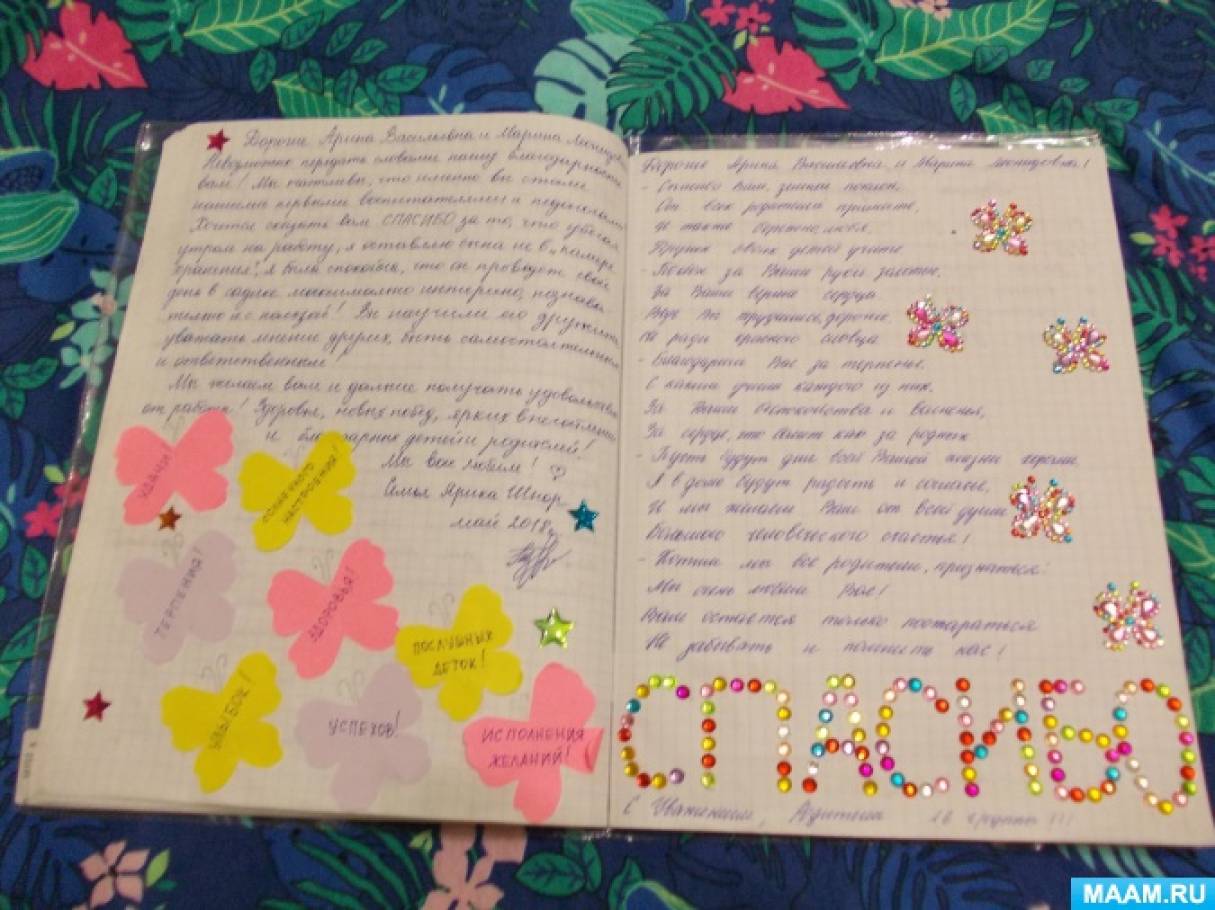 Дорогие Арина Васильевна и Марина
Невозможно передать словами нашу благодарность
вам! Мы счастливы, что именно вы стали
нашими первыми воспитателями и педагогами
Хочется сказать вам СПАСИБО за то, что убегая
утром на работу, я оставляю сына не в "камере
хранения", я была спокойна, что он проводет свой
день в садике максимально интерено, познава
тельно и с пользой! Вы научили его дружить,
уважать мнение других, быть самостоятельным
и ответственным
Мы желаем вам и дальше получать удовольствие
от работы! Здоровья, новых побед, ярких впечатлений
и благодарных детей и родителей!
Мы вас любим!
Семья Ярика Шнор
май 2018г
УДАЧИ!
НАСТРОЕНИЯ!
ТЕРПЕНИЯ!
ЗДОРОВЬЯ!
ПОСЛУШНЫХ
ДЕТОК!
УЛЫБОК!
УСПЕХОВ!
ИСПОЛНЕНИЯ
ЖЕЛАНИЙ!
Дорогие Арина Васильевна и Марина Леонидовна!
- Спасибо Вам, земной поклон,
От всех родителей примите,
И также бережно, любя,
Других своих детей учите
- Поклон за Ваши руки золотые,
За Ваши верные сердца
Ведь Вы трудились, дорогие
Не ради красного словца
- Благодарим Вас за терпенье,
С каким учили каждого из них,
За Ваши беспокойства и волнения,
За сердце, что болит как за родных
- Пусть будут дни всей Вашей жизни горячи
И в доме будут радость и согласье,
И мы желаем Вам от всей души
Большого человеческого счастья!
- Хотим мы все родители, признаться:
Мы очень любим Вас!
Вам остаётся только постараться
Не забывать и помнить нас!
СПАСИБО
С Уважением, Родители 16 группы !!!
MAAM.RU